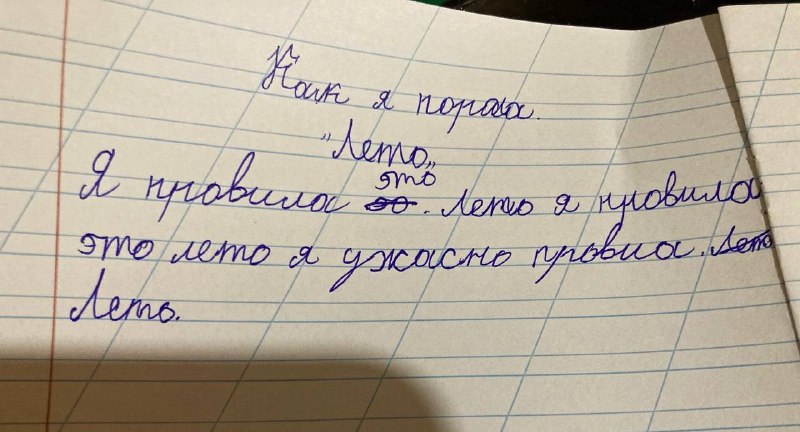 Как я пораа.
"Лето„
Я провила это. Лето я провила
это лето я ужасно провиа. Лето
Лето.